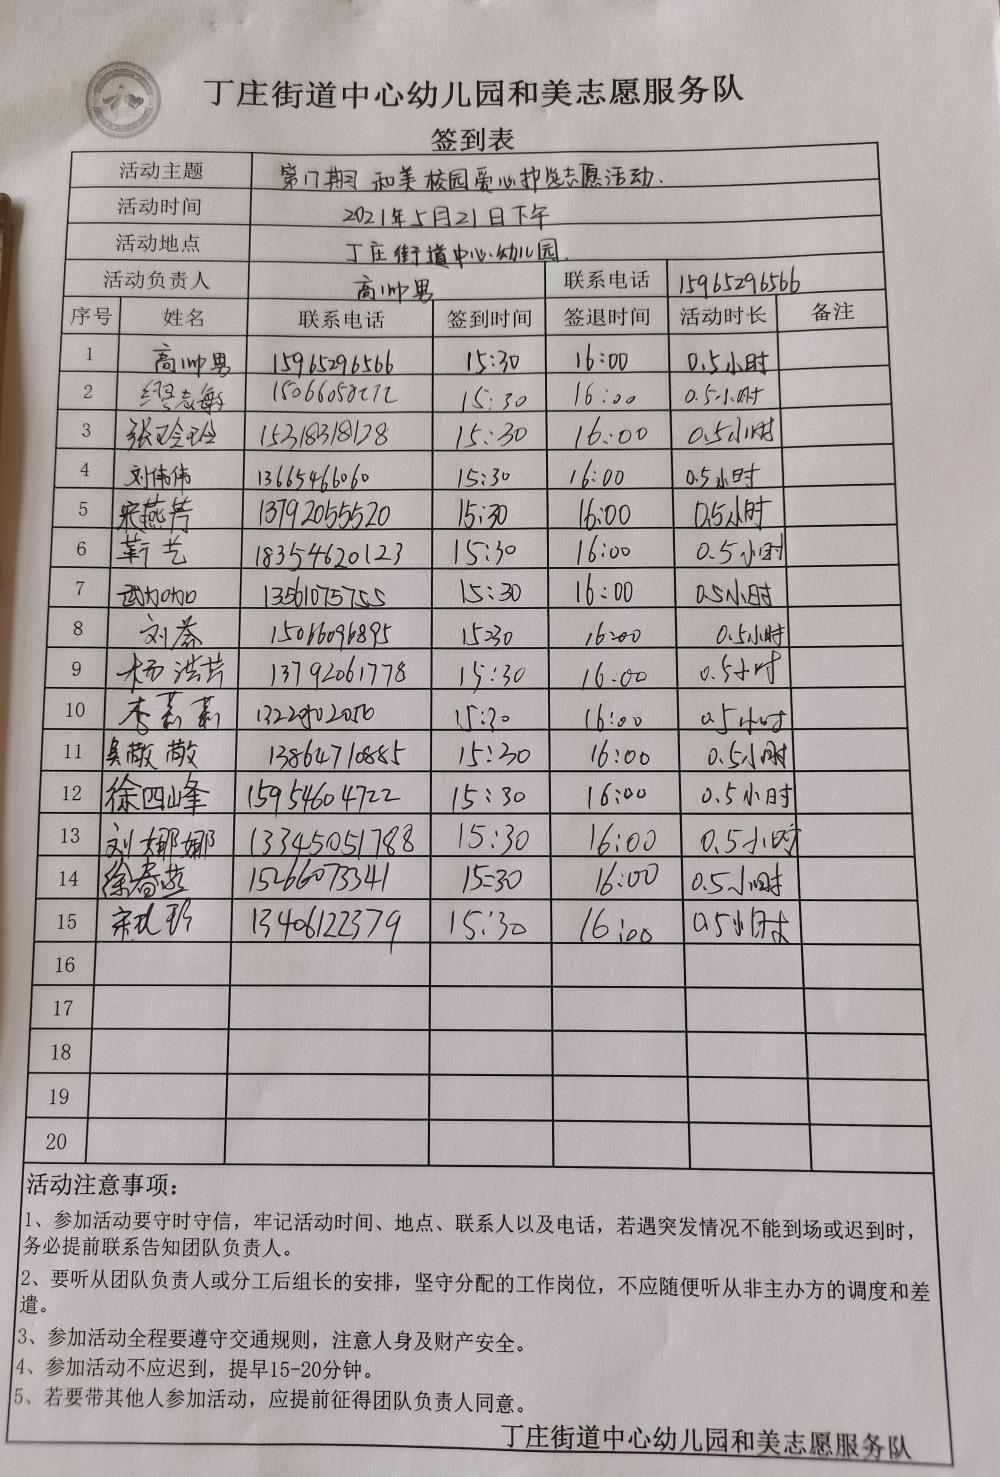 丁庄街道中心幼儿园和美志愿服务队
签到表
活动主题 第17期 和美校园爱心护苗志愿活动.
活动时间 2021年5月21日下午
活动地点 丁庄街道中心幼儿园.
活动负责人 高帅男 联系电话 15965296566
序号 姓名 联系电话 签到时间 签退时间 活动时长 备注
1 高帅男 15965296566 15:30 16:00 0.5小时
2 缪志敏 15:30 16:00 0.5小时
3 张玲玲 15318318128 15:30 16:00 0.5小时
4 刘伟伟 13665466060 15:30 16:00 0.5小时
5 宋燕芳 13792055520 15:30 16:00 0.5小时
6 靳艺 18354620123 15:30 16:00 0.5小时
7 武加加 13561075755 15:30 16:00 0.5小时
8 刘荟 15066096895 15:30 16:00 0.5小时
9 杨洪芸 13792061778 15:30 16:00 0.5小时
10 李莉莉 15:30 16:00 0.5小时
11 吴敬敬 13864710885 15:30 16:00 0.5小时
12 徐四峰 15954604722 15:30 16:00 0.5小时
13 刘娜娜 13345051788 15:30 16:00 0.5小时
14 徐春燕 15266073341 15:30 16:00 0.5小时
15 13406122379 15:30 16:00 0.5小时
16
17
18
19
20
活动注意事项：
1、参加活动要守时守信，牢记活动时间、地点、联系人以及电话，若遇突发情况不能到场或迟到时，
务必提前联系告知团队负责人。
2、要听从团队负责人或分工后组长的安排，坚守分配的工作岗位，不应随便听从非主办方的调度和差
遣。
3、参加活动全程要遵守交通规则，注意人身及财产安全。
4、参加活动不应迟到，提早15-20分钟。
5、若要带其他人参加活动，应提前征得团队负责人同意。
丁庄街道中心幼儿园和美志愿服务队